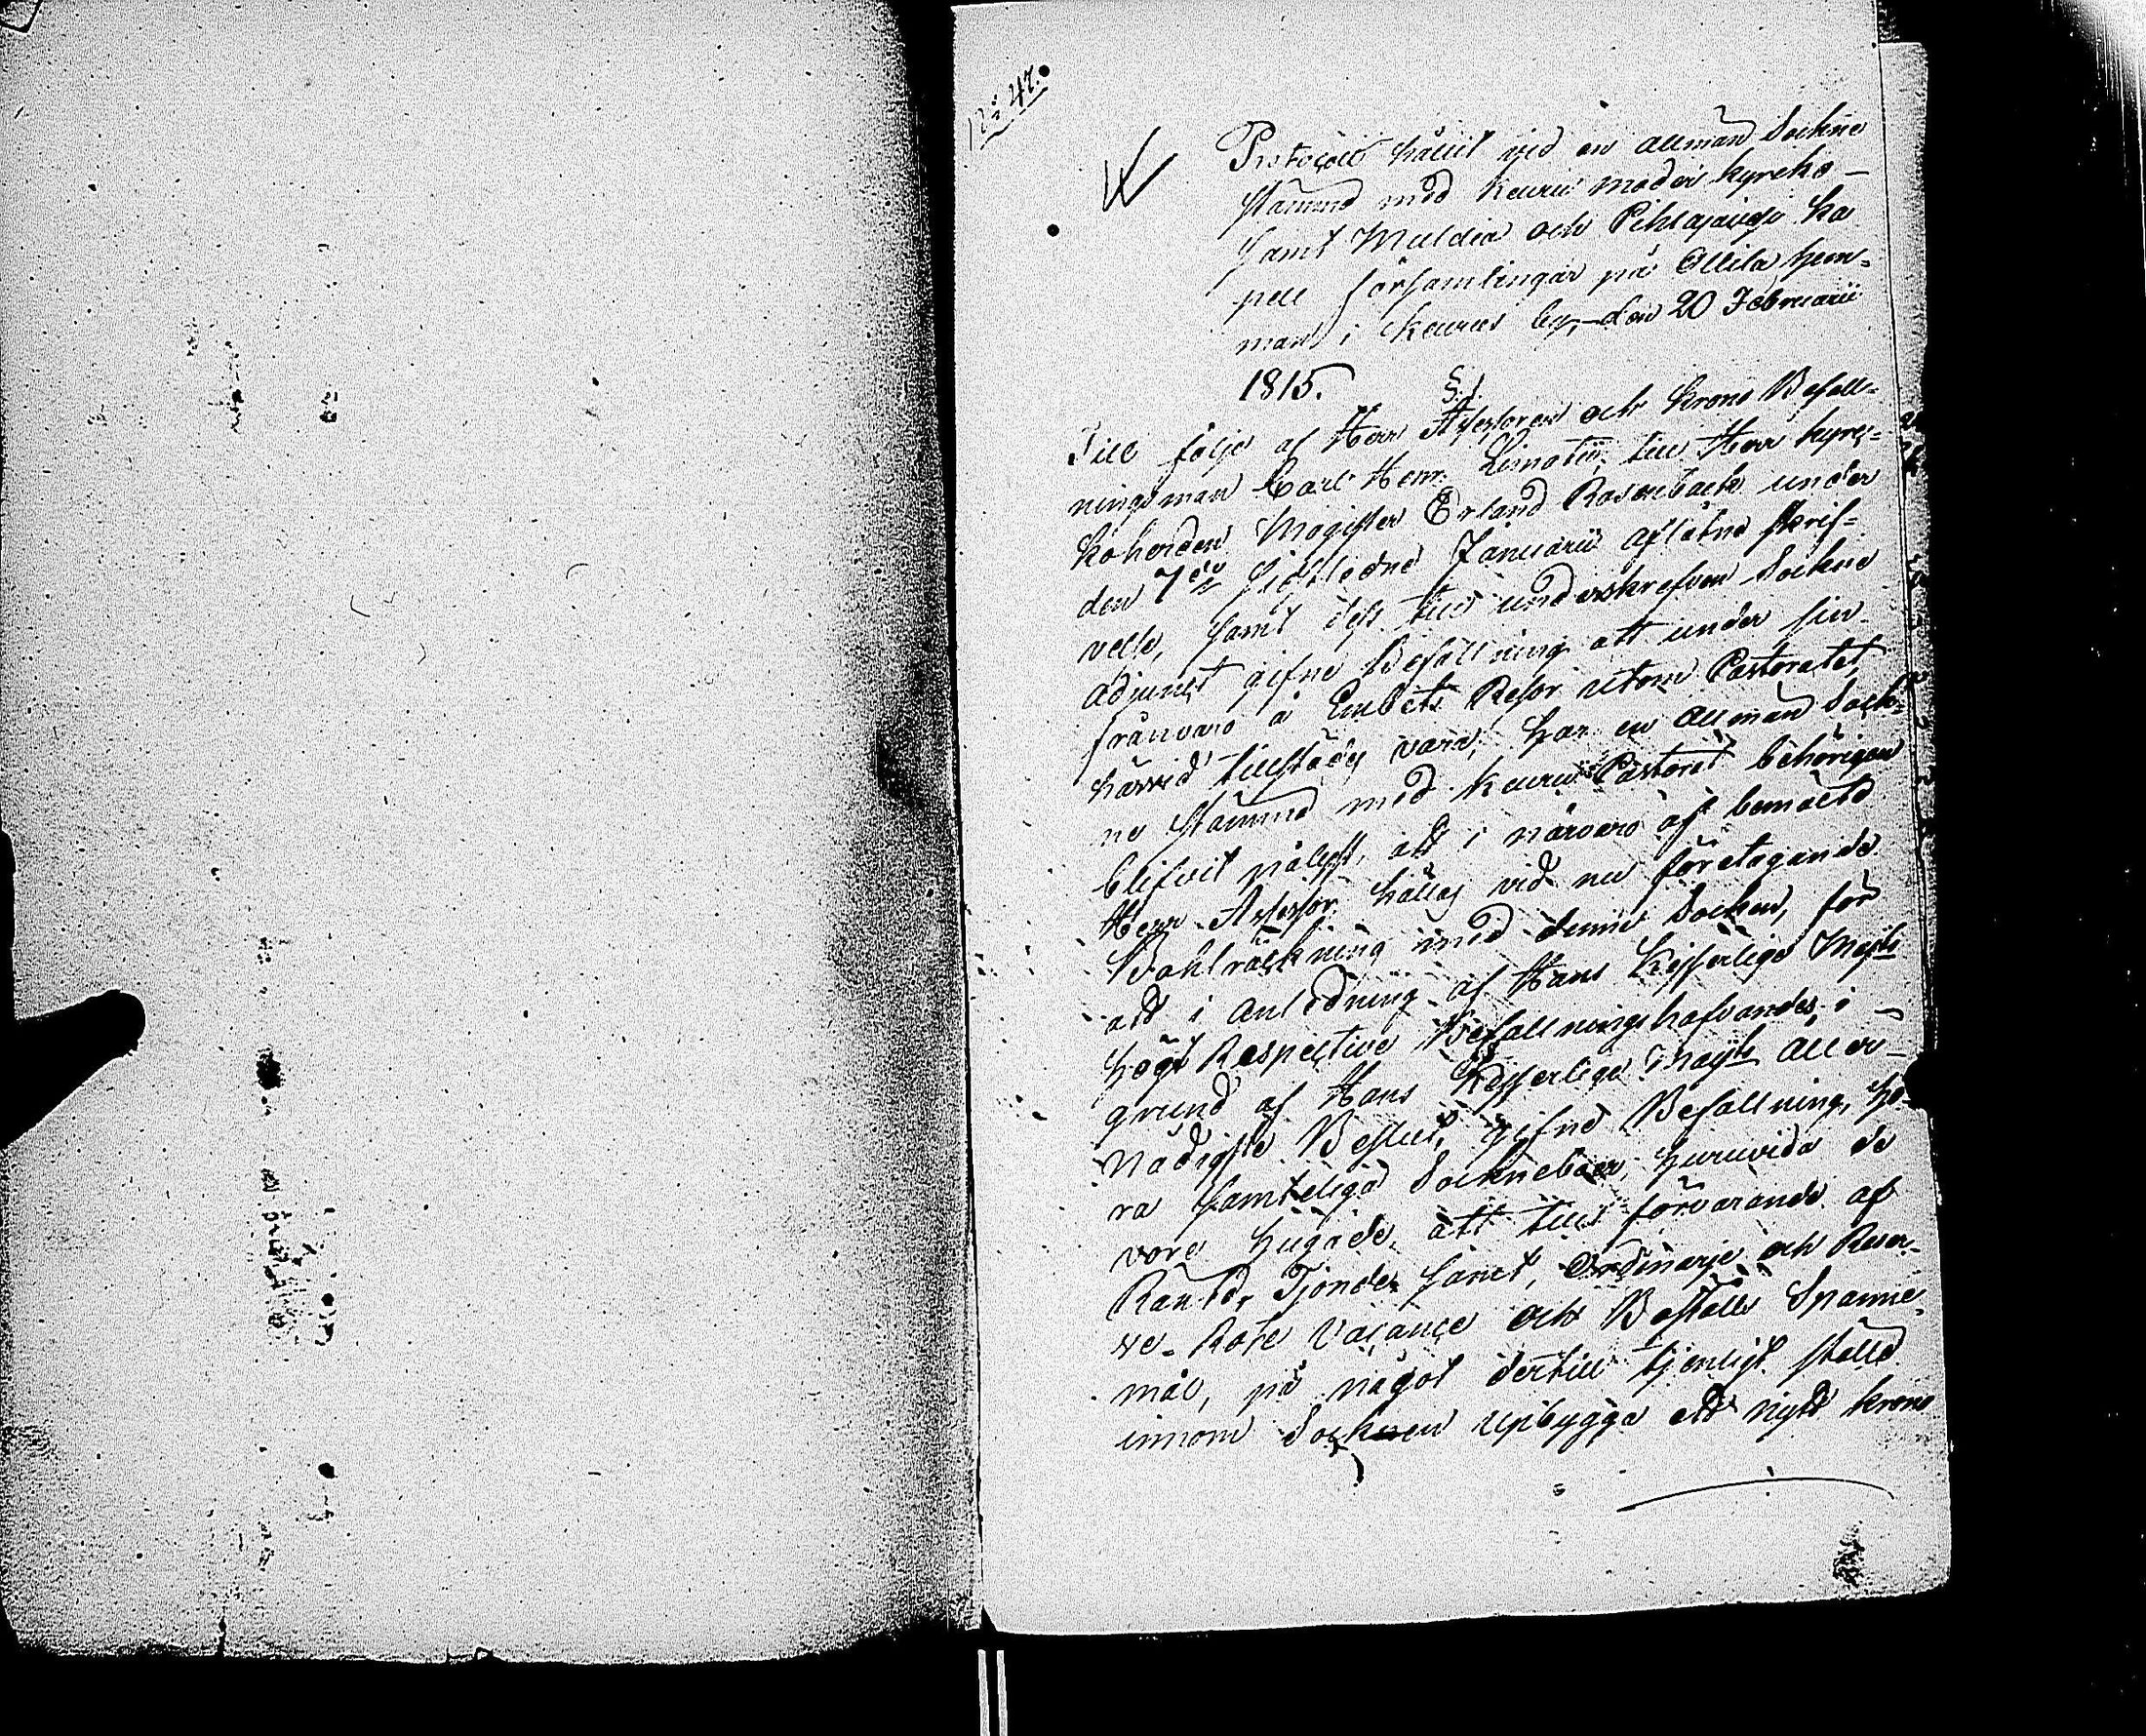 N: 47.
Protocoll hållit vid en allmän Sockne
stämma med Keuru moder kyrcko-
samt Multia och Pihlajavesi Ka
pell församlingar på Ollila hem-
man i Keurus by, den 20 Februarii
1815.
§ 1.
Till följe af Herr Assessoren och Krono Befall-
ningsman Carl Henr. Limatii, till Herr kyrc-
koherden Magister Erland Rosenback under
den 7de sidstledne Januarii aflåtne skrif-
velse, samt dess till underskrefven Sockne
adjunct gifne befallning att under sin
frånvaro å Embets Resor utom Pastoratet,
härvid tillstädes vara, har en allmän Sock-
ne stämma med Keuru Pastorat behörigen
blifvit pålyst, att i närvaro af bemälte
Herr Assessor hållas vid nu företagande
Bohlräckning med denne Socken, för
att i anledning af Hans Kejserlige Majts
högt Respective Befallningshafvandes, i
grund af Hans Kejserlige Majts aller-
nådigste Beslut, gifne Befallning, hö-
ra samtelige Sockneboer, huruvida de
vore hugade, att till förvarande af
Räntor, Tjonde samt, Ordinarje och Reser-
ve-Rote Vacance och Boställs Spanne-
mål, på något dertill tjenligt ställe
innom Socknen upbygga ett nytt krono